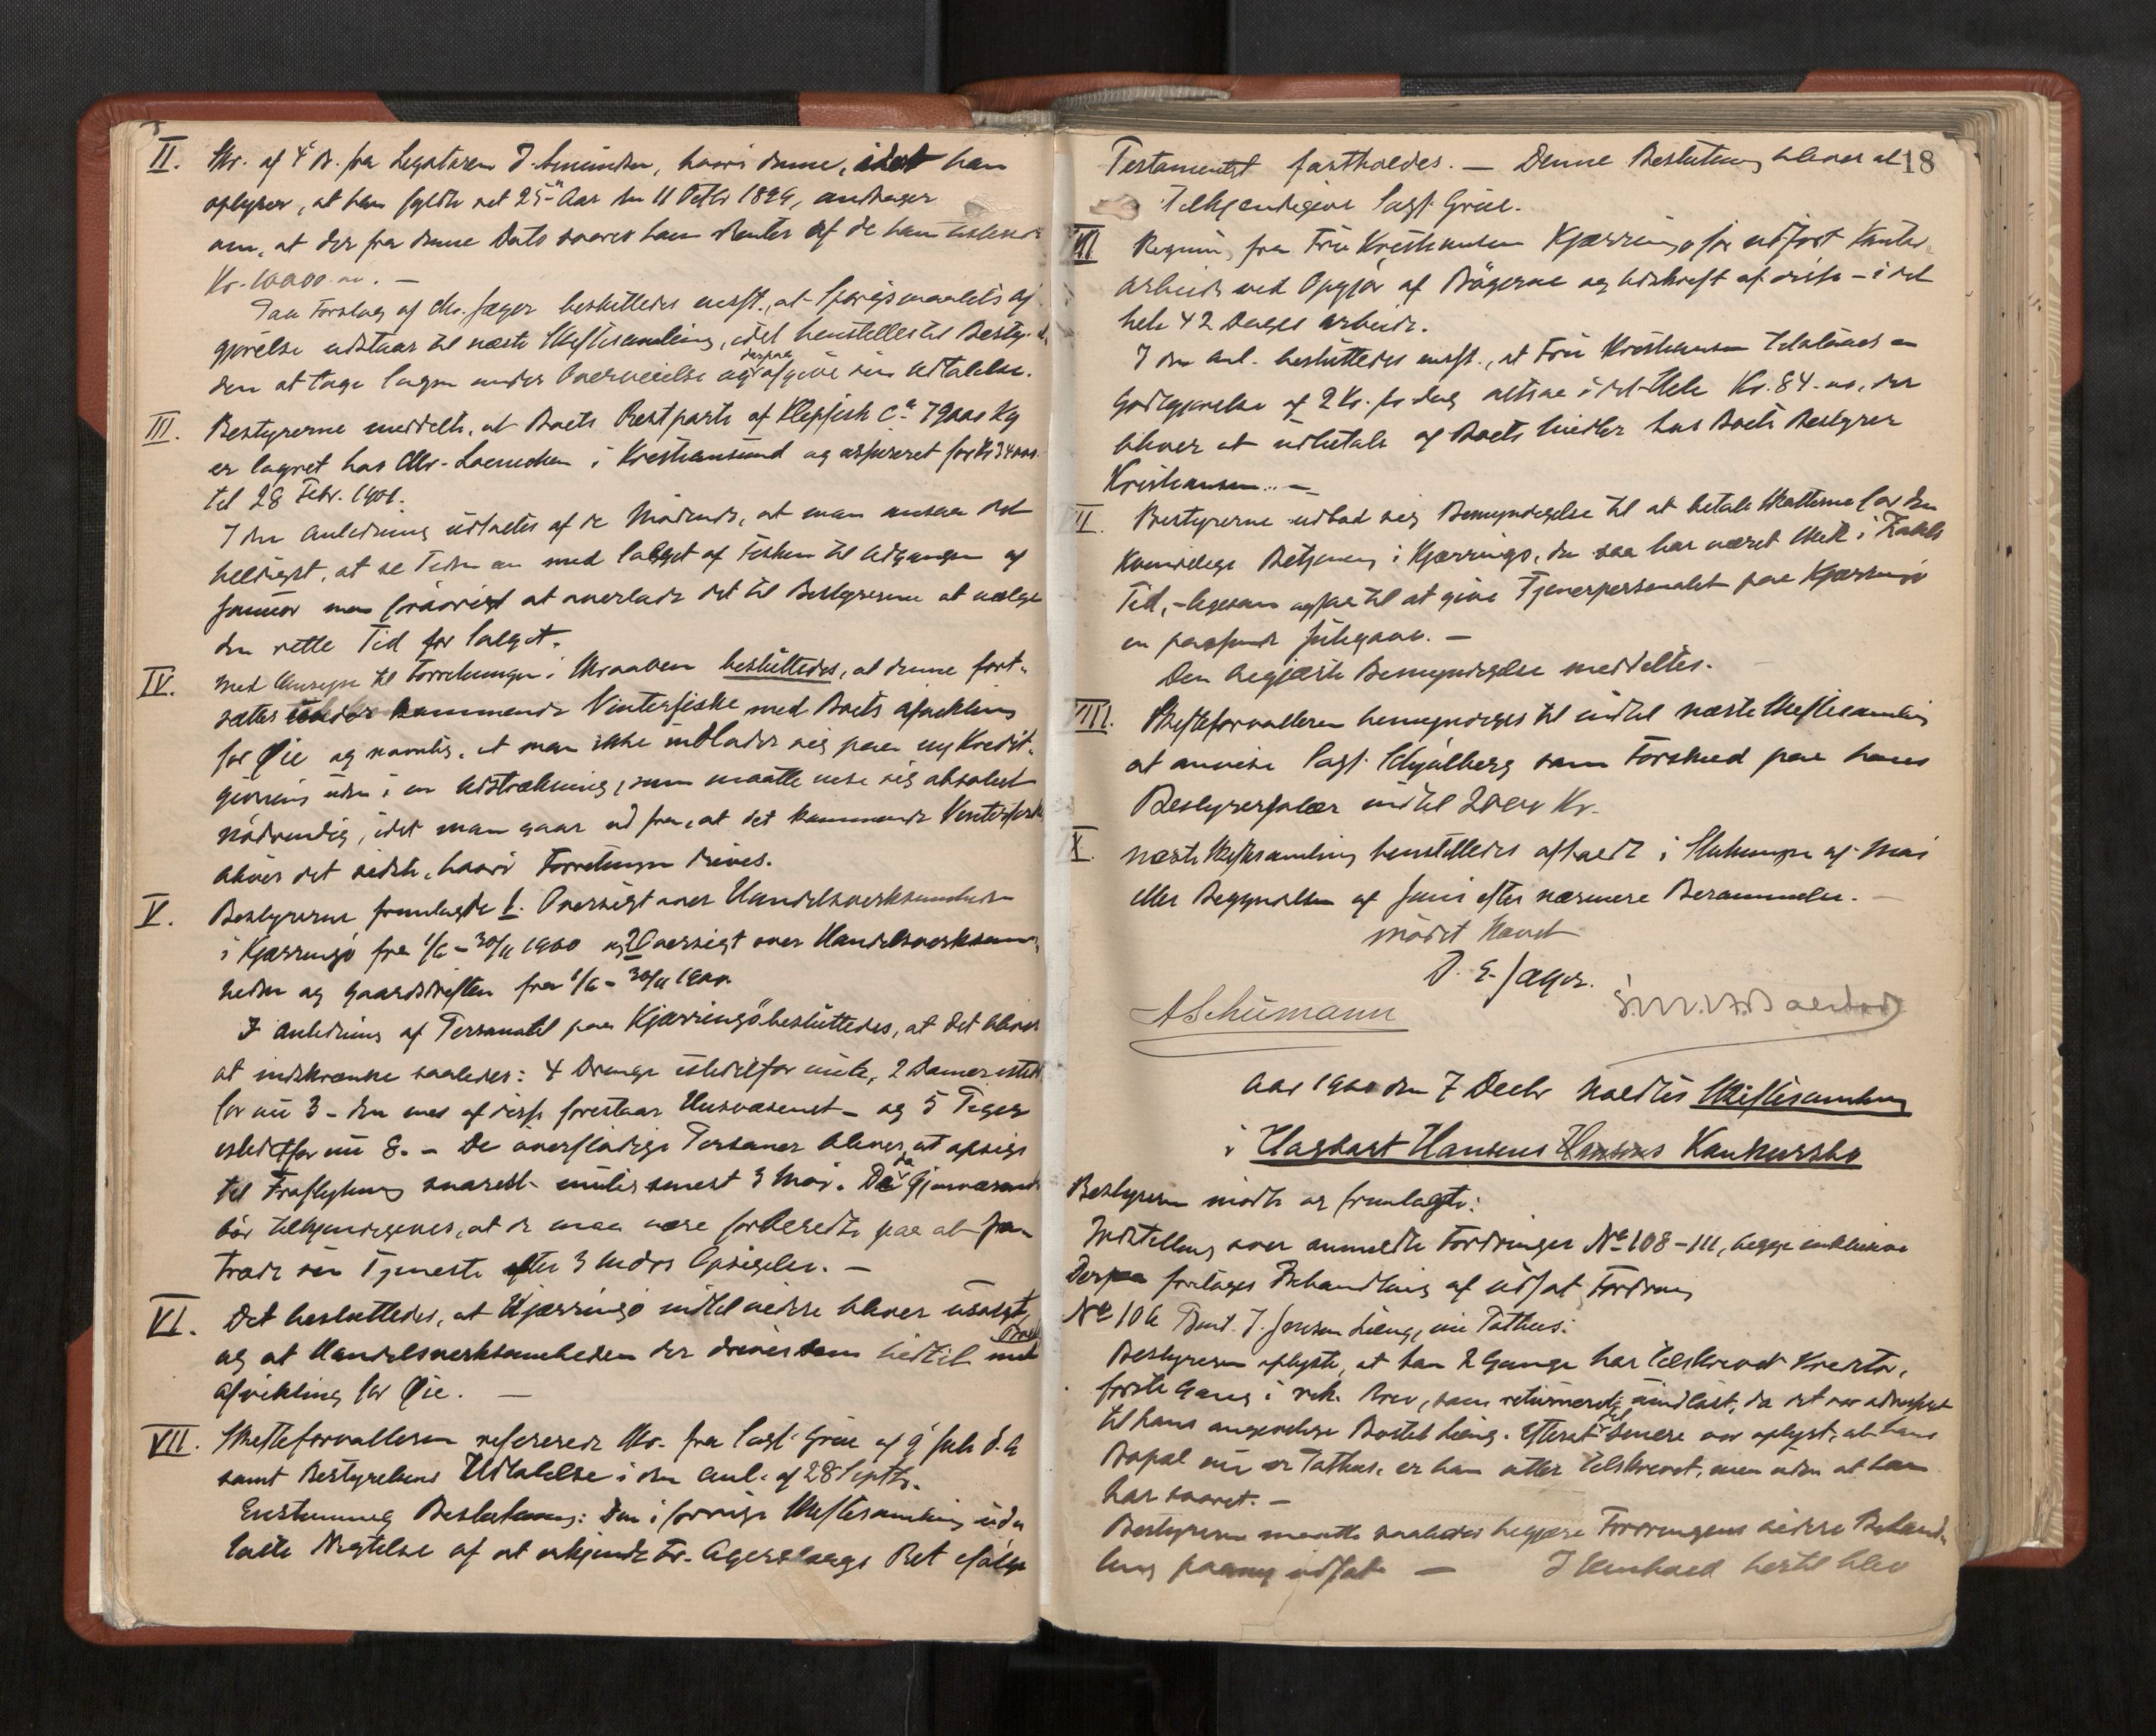 II. Skr. af 4 ds. fra Legataren J. Amundsen, hvori denne, idet han
oplyser, at han fyldte sit 25de Aar den 11 Octbr 1899, andrager
om, at der fra denne Dato svares ham Renter af de ham
Kr. 10000.00. —
Paa Forslag af Adv. Jæger besluttedes enst., at Spørgsmaalets af-
gjørelse udstaar til næste Skiftesamling, idet henstilles til Besty-
den at tage Sagen under Overveielse og derpaa afgive sin Udtalelse.
III. Bestyrerne meddelte, at Boets Restparti af Klipfisk ca 79000 Kg
er lagret hos Chr. Loennechen i Kristiansund og assureret for Kr 34000
til 28 Febr. 1901.
I den Anledning udtaltes af de Mødende, at man ansaa det
heldigst, at se Tiden an med Salget af Fisken til Udgangen af
Januar men forøvrigt at overlade det til Bestyrerne at vælge
den rette Tid for Salget.
IV. Med Hensyn til Forretningen i Skraaven besluttedes, at denne fort-
sættes kommende Vinterfiske med Boets afvikling
for Øie og navnlig, at man ikke indlader sig paa ny Kredit-
givning uden i en Udstrækning, som maatte vise sig absolut
nødvendig, idet man gaar ud fra, at det kommende Vinterfiske
bliver det sidste, hvori Forretningen drives.
V. Bestyrerne fremlagde 1. Oversigt over Handelsvirksomheden
i Kjærringø fra 1/6 - 30/11 1900 og 2 Oversigt over Handelsvirksom-
heden og Gaardsdriften fra 1/6 - 30/11 1900.
I Anledning af Personalet paa Kjærringø besluttedes, at det bliver
at indskrænke saaledes: 4 Drenge istedetfor 2 Damer istedet
for nu 3 - den ene af disse forestaar Husvæsenet - og 5 Piger
istedetfor nu 8. - De overflødige Personer bliver at opsige
til Fraflytning snarest senest 3 Mdr. De Gjenværende
bør tilkjendegives, at de maa være forberedte paa at fra-
træde sin Tjeneste efter 3 Mdrs Opsigelse. —
VI. Det besluttedes, at Kjærringø indtil videre bliver usolgt,
og at Handelsvirksomheden der drives som hidtil med Boets
afvikling for Øie. —
VII. Skifteforvalteren refererede Skr. fra Sagf. Grüe af 9 Juli d. A
samt Bestyrelsens Udtalelse i den Anl. af 28 Septbr.
Enstemmig Beslutning: Den i forrige Skiftesamling
Nægtelse af at erkjende Fr. Agerskaags Ret ifølge
18
Testamentet fastholdes. — Denne Beslutning bliver at
Tilkjendegive Sagf. Grüe.
VII Regning fra Fru Kristiansen Kjærringø for udført Kontor-
arbeide ved Opgjør af Bøgerne og Udskrift af disse - i det
hele 42 Dages Arbeide.
I den Anl. besluttedes enst., at Fru Kristiansen tilstaaes en
Godtgjørelse af 2 Kr. pr dag altsaa i det Hele Kr. 84.00, der
bliver at udbetale af Boets Midler hos Boets Bestyrer
Kristiansen. —
Bestyrerne udbad sig Bemyndigelse til at betale Skatterne for den
Kvindelige Betjening i Kjærringø, der saa har været Skik i Zahls
Tid, - ligesom ogsaa til at give Tjenerpersonalet paa Kjærringø
en passende Julegave. —
Den begjærte Bemyndigelse meddeltes.
VIII. Skifteforvalteren bemyndiges til indtil næste Skiftesamling
at anvise Sagf. Schjølberg som Forskud paa hans
Bestyrersalær indtil 2000 Kr.
X. Næste Skiftesamling henstilledes afholdt i Slutningen af Mai
eller Begyndelsen af Juni efter nærmere Berammelse. —
Mødet Hævet
D. E. Jæger.
A Schumann
Aar 1900 den 7 Decbr holdtes Skiftesamling
i Hagbart Hansens Konkursbo
Bestyreren mødte og fremlagte:
Indstilling over anmeldte Fordringer No 108-111, begge inklusive
Derpaa foretages Behandling af udsat Fordring
No 106 Bent. J. Jensen Liang, nu Tathus:
Bestyreren oplyste, at han 2 Gange har tilskrevet Kreditor,
første Gang i rek. Brev, som returneredes uindløst, da det var adresseret
til hans angivelige Bosted Liang. Efterat det senere var oplyst, at hans
Bopæl nu er Tathus, er han atter tilskrevet, men uden at han
har svaret. —
Bestyreren maatte saaledes begjære Fordringens videre Behand-
ling paany udsat — I Henhold hertil blev